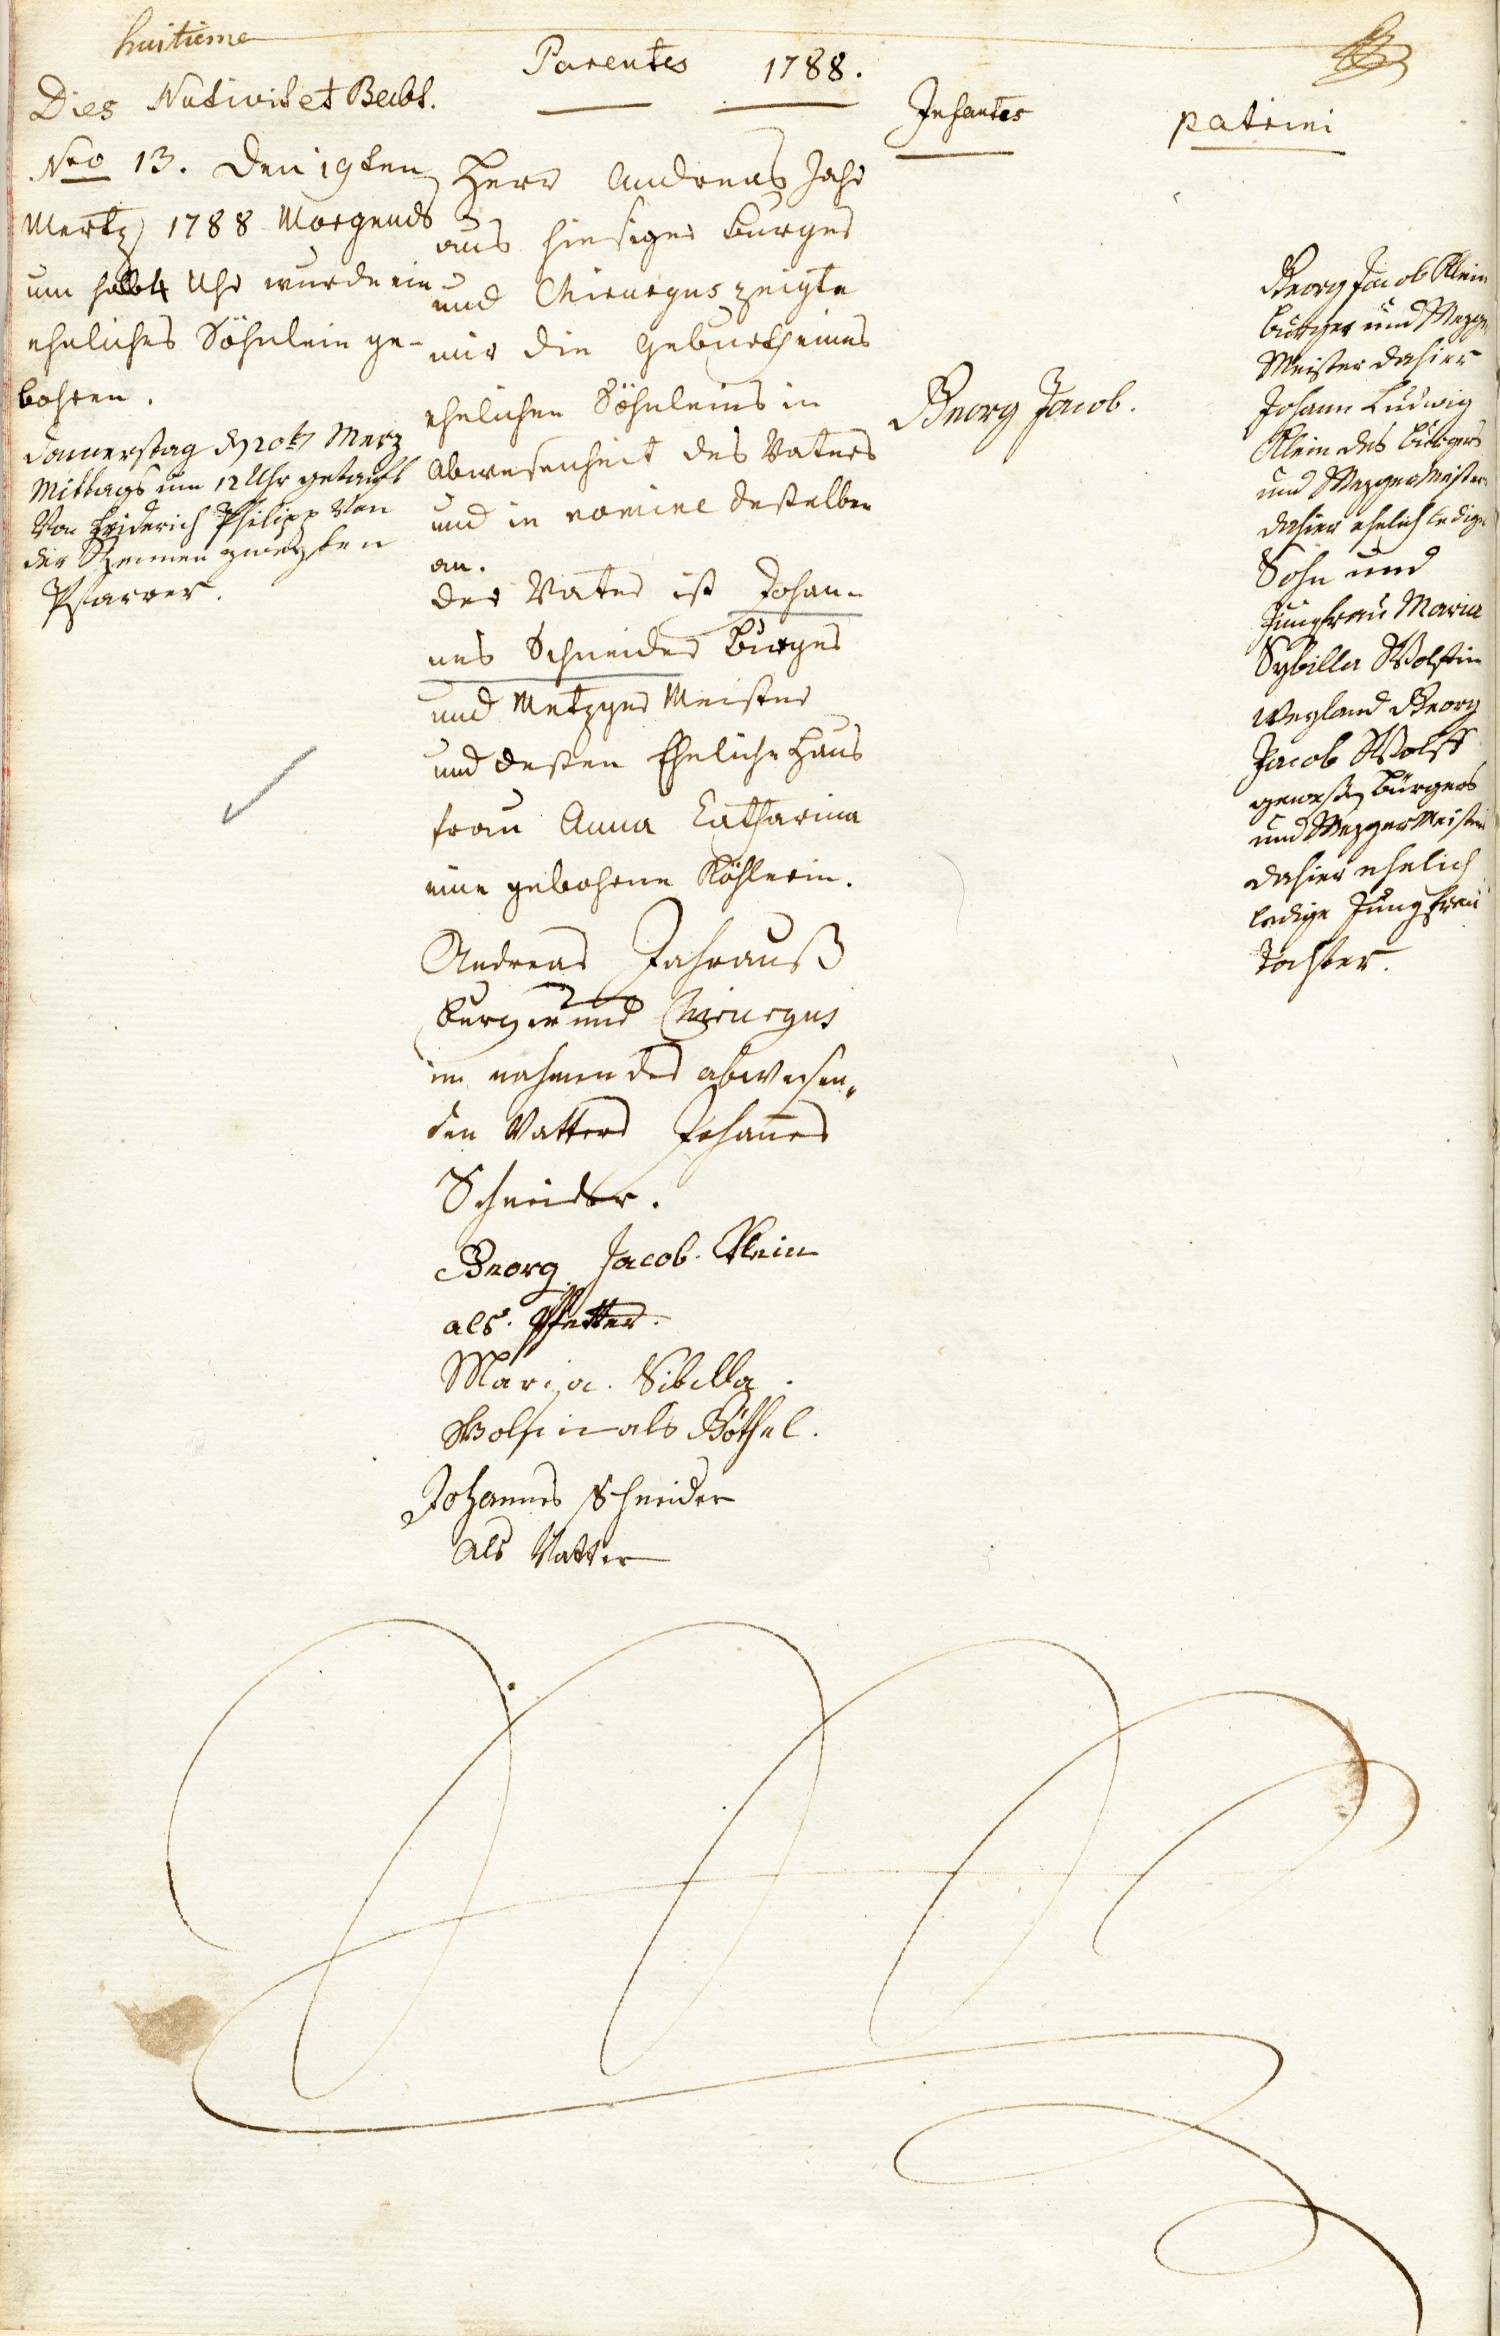 huitieme
Dies Nativit et Babt.
Nro 13. Den 19ten
Mertz 1788 Morgends
um halb 4 Uhr wurde ein
eheliches Söhnlein ge-
bohren.
Donnerstag d 20t Merz
Mittags um 12 Uhr getauft
Von Friderich Philipp Von
der zweyten
Pfarrer.
Parentes 1788.
Herr Andreas Jahr
aus hiesiger Burger
und Chirurgus zeigte
mir die Geburth eines
ehelichen Söhnleins in
Abwesenheit des Vaters
und in nomine desselben
an.
der Vater ist Johan-
nes Schneider Burger
und Metzger Meister
und dessen Eheliche Haus
frau Anna Catharina
eine gebohrne Köhlerin.
Andreas Jahrauß
burger und Chirurgus
im nahmen des abwesen„
den Vatters Johannes
Schneider.
Georg Jacob Klein
als Pfetter.
Marija Sibilla
Wolfin als Göthel.
Johannes Schneider
als Vatter
Infantes
Georg Jacob.
patrini
Georg Jacob Klein
burger und Mezger
Meister dahier
Johann Ludwig
Klein des burgers
und Mezger Meisters
dahier ehelich lediger
Sohn und
Jungfrau Maria
Sybilla Wolffin
weyland Georg
Jacob Wolff
geweßen Bürgers
und Mezger Meisters
dahier ehelich
ledige Jungfrau
Tochter.